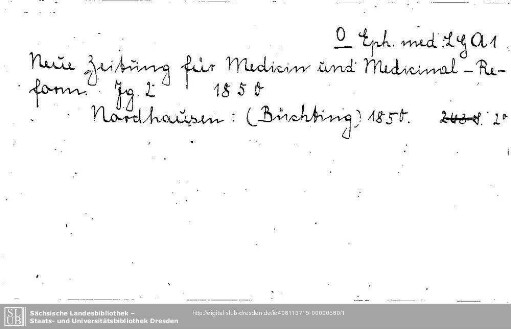 O Eph. med. LGA1
Neue Zeitung für Medicin und Medicinal-Re-
form. Jg. 2 1850
Nordhausen: (Büchting) 1850. 2°
SLUB
Sächsische Landesbibliothek –
Staats- und Universitätsbibliothek Dresden